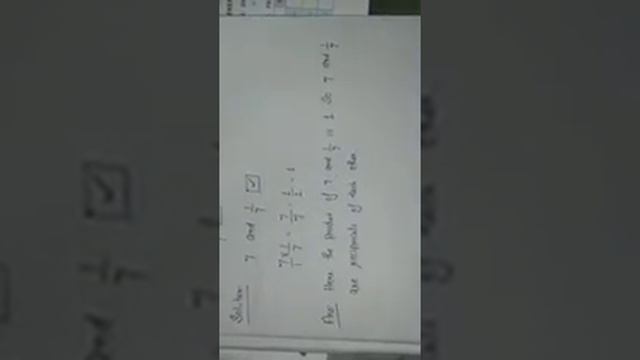 Solution
7 and 1/7 ☑
7×1/1 7 = 7/7 = 1/1 = 1
Ans: Here the product of 7 and 1/7 is 1. So 7 and 1/7
are reciprocals of each other